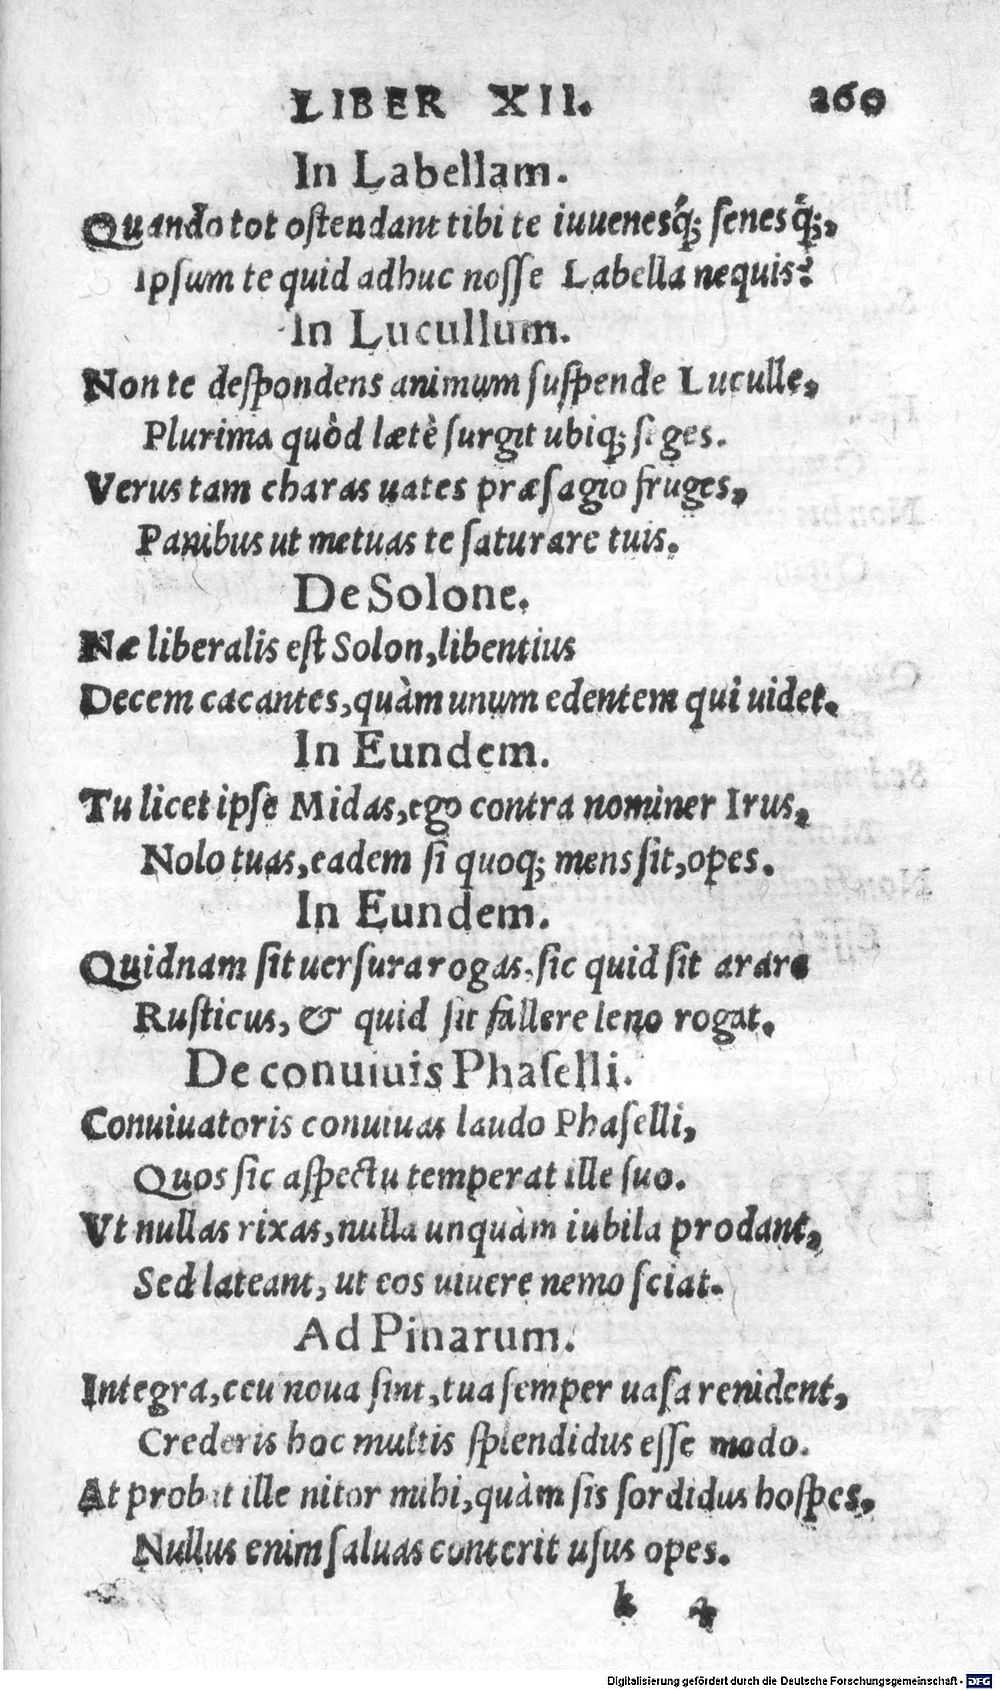 LIBER XII. 260
In Labellam.
Quando tot ostendant tibi te iuuenesq́; senesq́;,
Ipsum te quid adhuc nosse Labella nequis?
In Lucullum.
Non te despondens animum suspende Luculle,
Plurima quòd lætè surgit ubiq; seges.
Verus tam charas uates præsagio fruges,
Panibus ut metuas te saturare tuis.
De Solone.
Næ liberalis est Solon, libentius
Decem cacantes, quàm unum edentem qui uidet.
In Eundem.
Tu licet ipse Midas, ego contra nominer Irus,
Nolo tuas, eadem si quoq; mens sit, opes.
In Eundem.
Quidnam sit uersura rogas, sic quid sit arare
Rusticus, & quid sit fallere leno rogat.
De conuiuis Phaselli.
Conuiuatoris conuiuas laudo Phaselli,
Quos sic aspectu temperat ille suo.
Vt nullas rixas, nulla unquàm iubila prodant,
Sed lateant, ut eos uiuere nemo sciat.
Ad Pinarum.
Integra, ceu noua sint, tua semper uasa renident,
Crederis hoc multis splendidus esse modo.
At probat ille nitor mihi, quàm sis sordidus hospes,
Nullus enim saluas conterit usus opes.
k 4
Digitalisierung gefördert durch die Deutsche Forschungsgemeinschaft - DFG